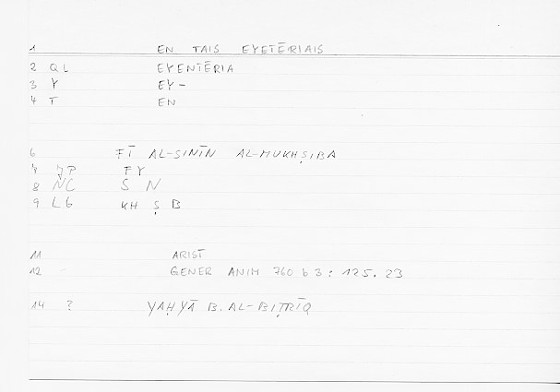 1 EN TAIS EYETĒRIAIS
2 QL EYENTĒRIA
3 Y EY-
4 T EN
6 FĪ AL-SINĪN AL-MUKHṢIBA
7 JP FY
8 NC S N
9 LG KH Ṣ B
11 ARIST
12 GENER ANIM 760 b 3 : 125. 23
14 ? YAḤYĀ B. AL-BIṬRĪQ